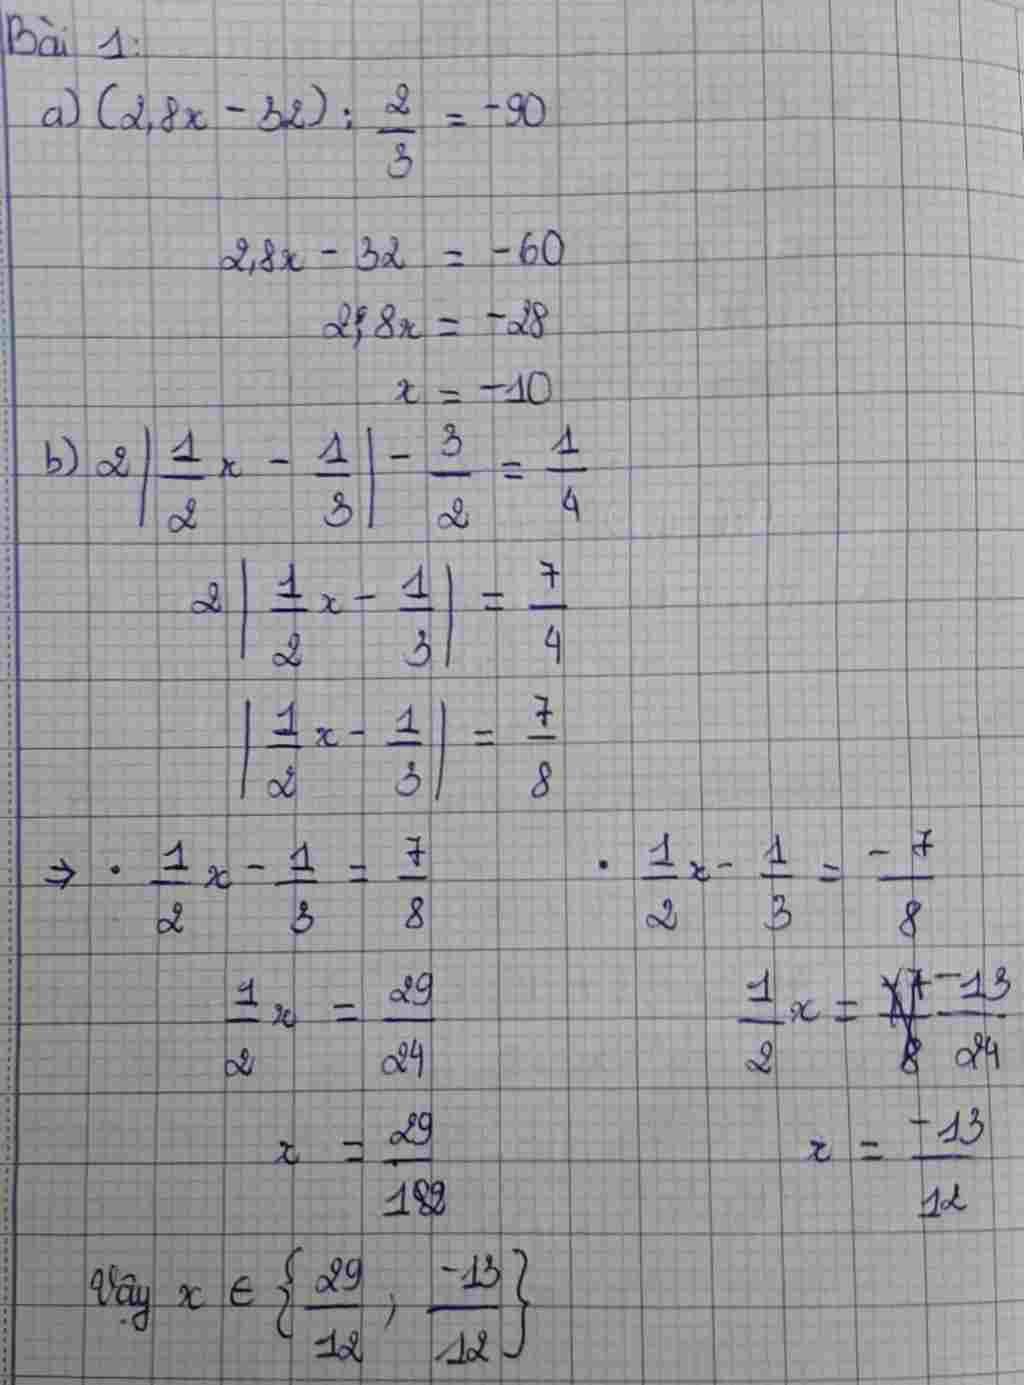 Bài 1:
a) (2,8x - 32) : 2/3 = -90
2,8x - 32 = -60
2,8x = -28
x = -10
b) 2|1/2 x - 1/3| - 3/2 = 1/4
2|1/2 x - 1/3| = 7/4
|1/2 x - 1/3| = 7/8
⇒ · 1/2 x - 1/3 = 7/8 · 1/2 x - 1/3 = -7/8
1/2 x = 29/24 1/2 x = -13/24
x = 29/12 x = -13/12
Vậy x ∈ {29/12 ; -13/12}